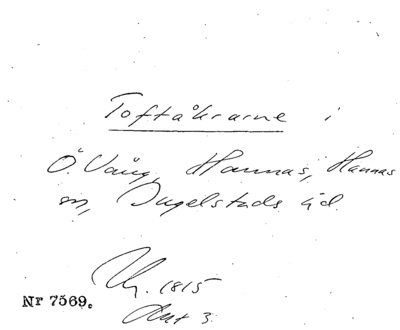 Toftåkrarne i
Ö. Vång, Hannas, Hannas
sn, Ingelstads hd.
1815
Akt 3.
Nr 7569.